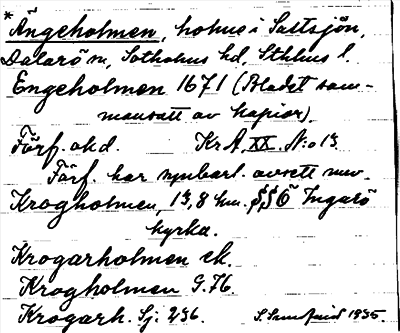 * Ängeholmen, holme i Saltsjön,
Dalarö sn, Sotholms hd, Sthlms l.
Engeholmen 1671 (Bladet sam-
mansatt av kopior).
Förf. okd. Kr A, XX. N:o 13.
Förf. har uppenbarl. avsett nuv.
Krogholmen, 13,8 km. S Ingarö
kyrka.
Krogarholmen ek.
Krogholmen G.76.
Krogarh. Sj. 236. 1935.